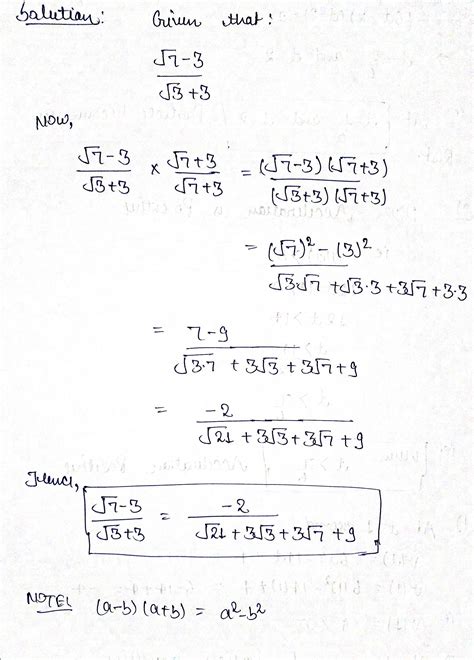 Solution: Given that:
√7-3 / √3+3
Now,
√7-3 / √3+3 × √7+3 / √7+3 = (√7-3)(√7+3) / (√3+3)(√7+3)
= (√7)² - (3)² / √3√7 + √3·3 + 3√7 + 3·3
= 7-9 / √3·7 + 3√3 + 3√7 + 9
= -2 / √21 + 3√3 + 3√7 + 9
Hence,
√7-3 / √3+3 = -2 / √21 + 3√3 + 3√7 + 9
NOTE: (a-b)(a+b) = a²-b²